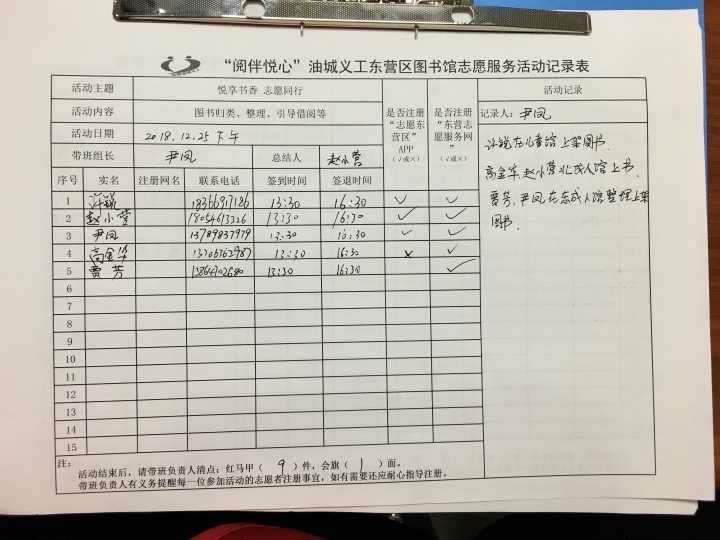 “阅伴悦心”油城义工东营区图书馆志愿服务活动记录表
活动主题 悦享书香 志愿同行 是否注册“志愿东营区”APP（√或×） 是否注册“东营志愿服务网”（√或×） 活动记录
活动内容 图书归类、整理、引导借阅等 记录人：尹凤
活动日期 2018.12.25下午
带班组长 尹凤 总结人 赵小营
序号 实名 注册网名 联系电话 签到时间 签退时间
1 许锐 18366917186 13:30 16:30 √ √
2 赵小营 18054613326 13:30 16:30 √ √
3 尹凤 13789837979 13:30 16:30 √ √
4 高金华 13706362987 13:30 16:30 × √
5 贾芳 13864702680 13:30 16:30 √
6
7
8
9
10
11
12
13
14
15
许锐在儿童馆上架图书.
高金华,赵小营北成人馆上书.
贾芳,尹凤在东成人馆整理上架
图书.
注：
活动结束后，请带班负责人清点：红马甲（ 9 ）件，会旗（ 1 ）面。
带班负责人有义务提醒每一位参加活动的志愿者注册事宜，如有需要还应耐心指导注册。